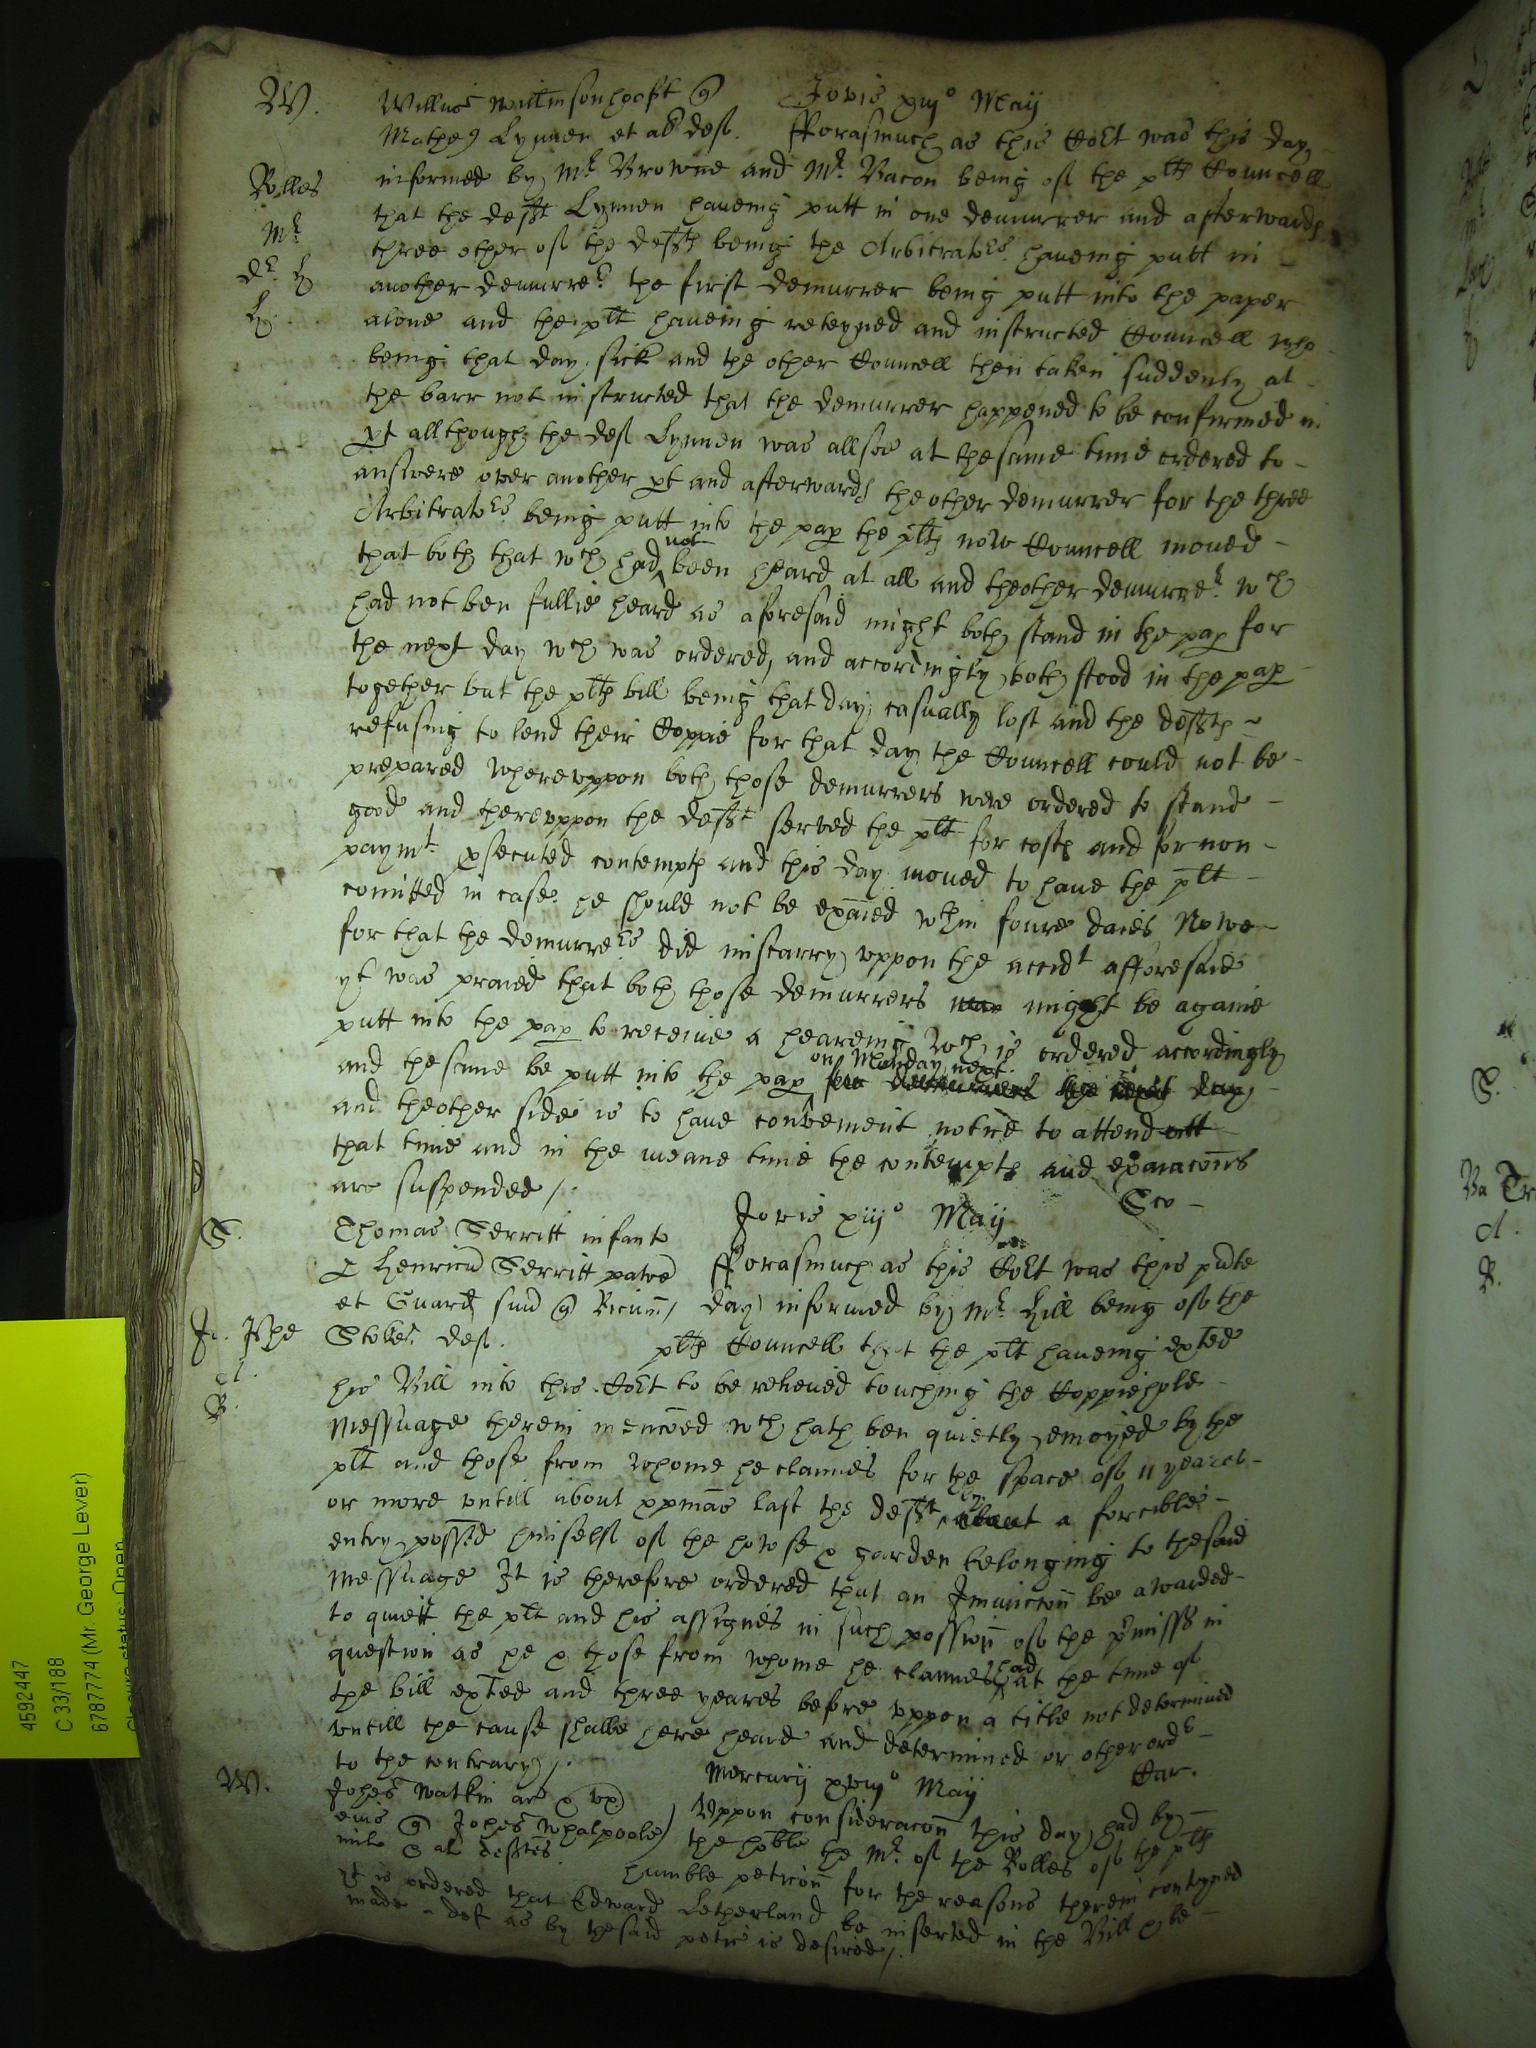 W.
Willus Willmson quer v̄ Jovis xiij° Maij
Mathe Lynnen et al def. fforasmuch as this Cort was this day
Rolles
informed by Mr Browne and Mr Bacon being of the plts Councell
Mr.
that the deft Lynnen haueing putt in one demurrer and afterwards
three other of the defts being the Arbitrators haueing putt in
another demurrer the first demurrer being putt into the paper
alone and the plt haueing reteyned and instructed Councell who
being that day sick and the other Councell then taken suddenly at
the barr not instructed that the demurrer happened to be confirmed in
pt allthough the def Lynnen was allsoe at thesame time ordered to
answere over another pt and afterwards theother demurrer for the three
Arbitrators being putt into the pap the plts now Councell moued
that both that wch had not been heard at all and theother demurrer wch
had not ben fullie heard as aforesaid might both stand in the pap for
the next day wch was ordered, and accordingly both stood in the pap
together but the plts bill being that day casually lost and the defts
refusing to lend their Coppie for that day the Councell could not be
prepared wherevppon both those demurrers were ordered to stand
good and therevppon the deft served the plt for costs and for non
paymt psecuted contempts and this day moued to haue the plt
comitted in case he should not be exaied wthin foure daies Nowe
for that the demurrers did miscarry vppon the accidt afforesaid
yt was praied that both those demurrers might be againe
putt into the pap to receiue a heareing wch is ordered accordingly
and thesame be putt into the pap on Monday next
and theother side is to haue convenient notice to attend att
that time and in the meane time the contempts and exaiacons
are suspended /.
S. Jovis xiij° Maij
Thomas Serritt infans
p Henricu Serritt patre fforasmuch as this Cort was this pnte
et Guard suu v̄ Ricum day informed by Mr Hill being of the
Stokes def. plts Councell that the plt haueing exted
his Bill into this Cort to be releiued touching the Coppiehold
Messuage therein mencoed wch hath ben quietly enioyed by the
plt and those from whome he claimes for the space of 11 yeares
or more vntill about xpmas last the deft by a forcible
entry possed himself of the howse & garden belonging to thesaid
Messuage It is therefore ordered that an Iniunccon be awarded
to quiett the plt and his assignes in such possion of the pmisss in
question as he & those from whome he claimes had at the time of
the bill exted and three yeares before vppon a title not determined
vntill the cause shalbe here heard and determined or other ordr
to the contrary /. Car.
W. Mercurij xviij° Maij
Johes Watkin ar & vx
eius v̄ Johes Whalpoole Vppon consideracon this day had by
milt & al deftes the hoble the Mr of the Rolles of the plts
humble peticon for the reasons therein conteyned
it is ordered that Edward Letherland be inserted in the Bill & be
made a def as by thesaid petic is desired /.
4592447
C 33/188
6787774 (Mr. George Lever)